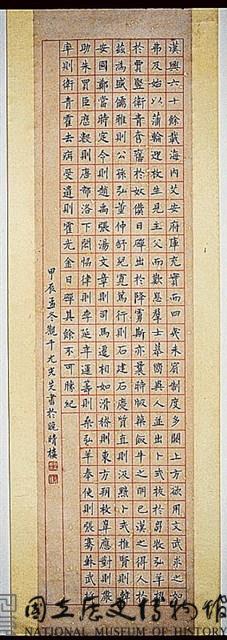 漢興六十餘載海內艾安府庫充實而四夷未賓制度多闕上方欲用文武求之如
弗及始以蒲輪迎枚生見主父而歎息羣士慕嚮異人並出卜式拔於芻牧弘羊擢
於賈豎衛青奮於奴僕日磾出於降虜斯亦曩時版築飯牛之明已漢之得人於
茲為盛儒雅則公孫弘董仲舒兒寬篤行則石建石慶質直則汲黯卜式推賢則韓
安國鄭當時定令則趙禹張湯文章則司馬遷相如滑稽則東方朔枚皋應對則嚴
助朱買臣歷數則唐都洛下閎協律則李延年運籌則桑弘羊奉使則張騫蘇武將
率則衛青霍去病受遺則霍光金日磾其餘不可勝紀
甲辰孟冬觀千尤光先書於晚晴樓
國立歷史博物館
NATIONAL MUSEUM OF HISTORY